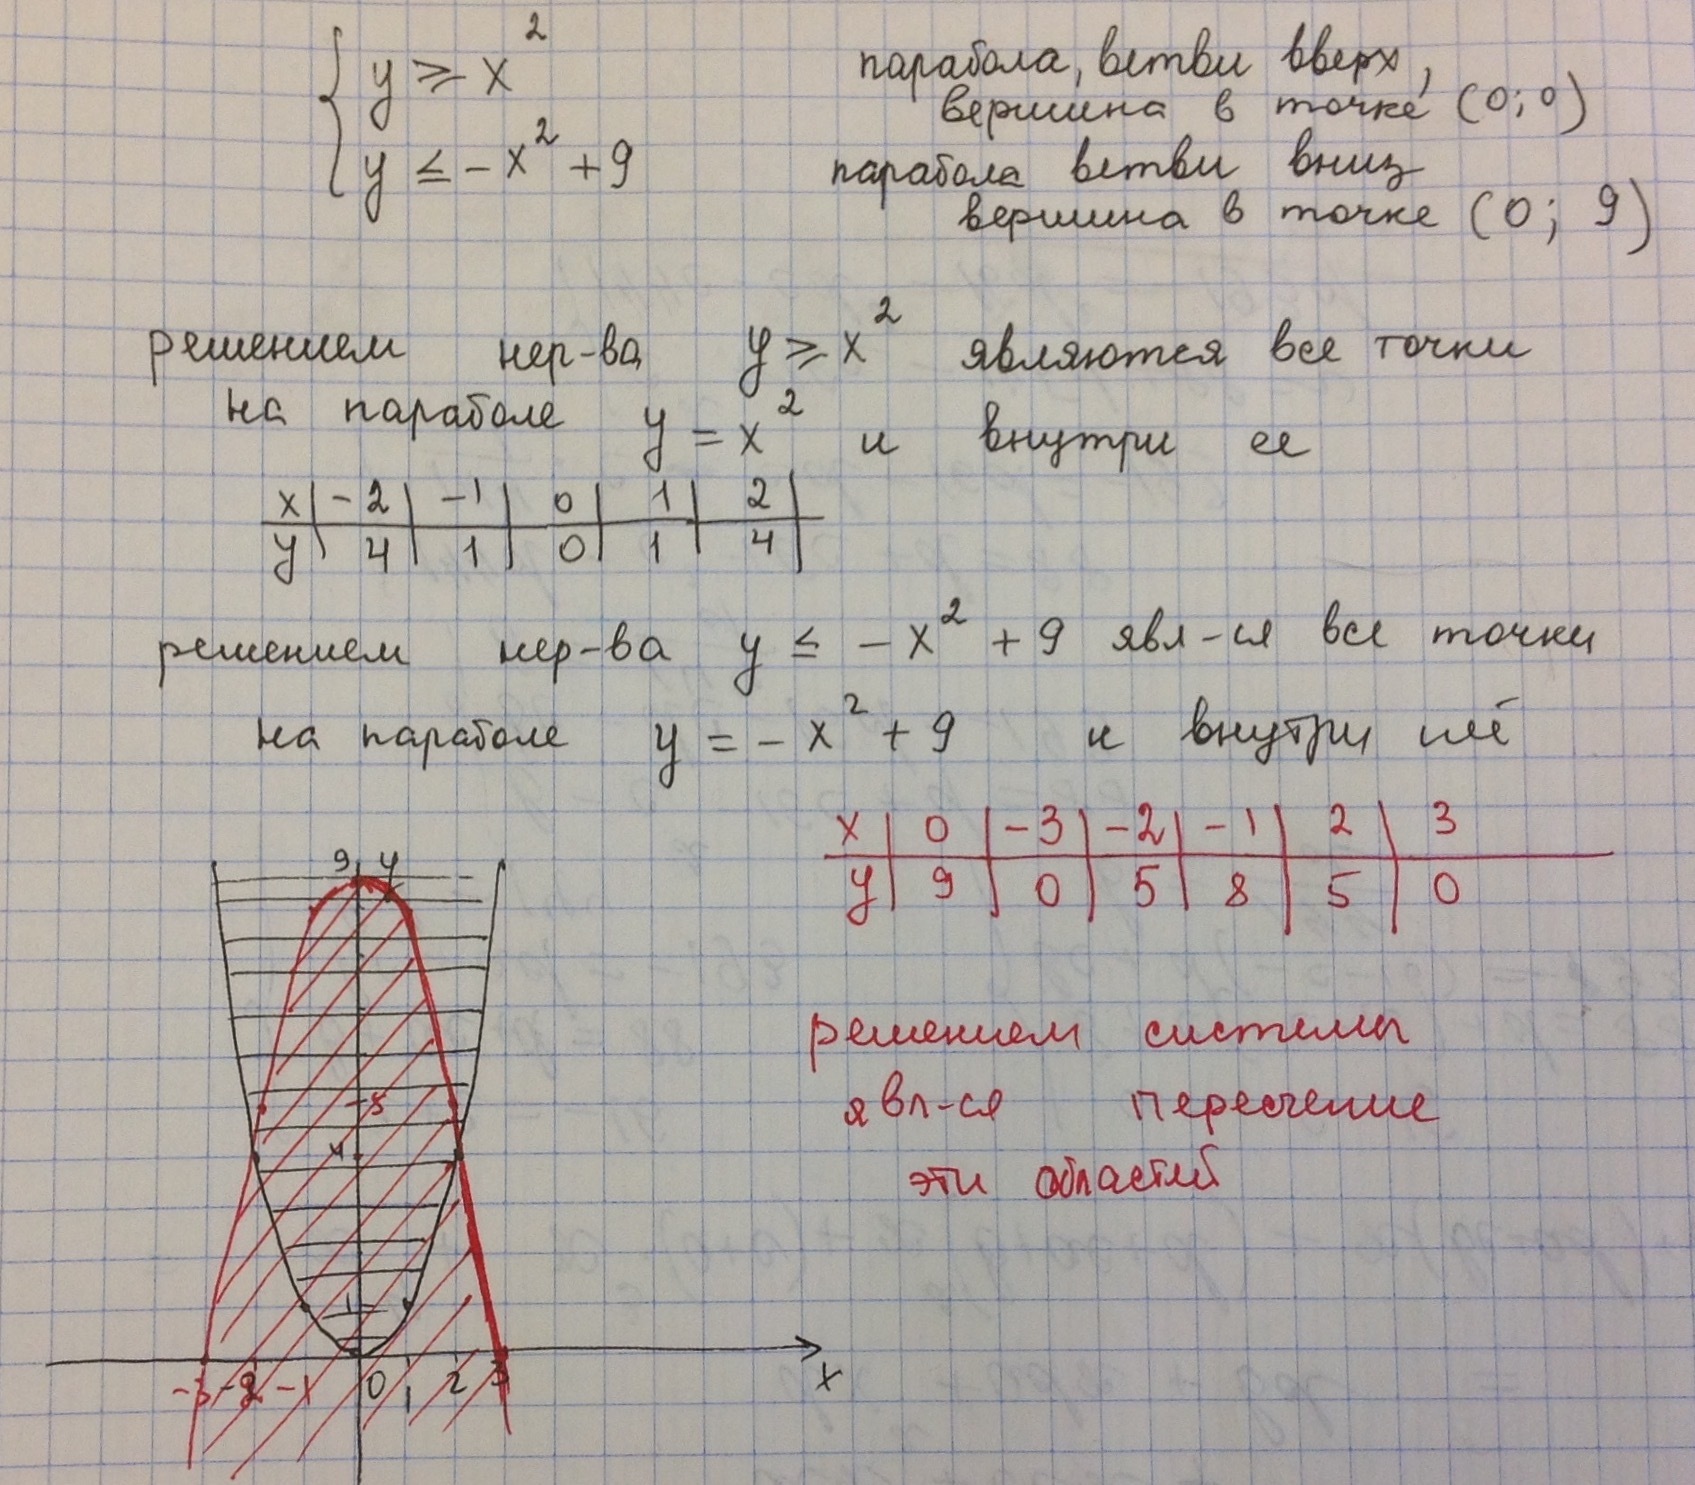 y ≥ x²
парабола, ветви вверх,
вершина в точке (0; 0)
y ≤ -x² + 9
парабола ветви вниз
вершина в точке (0; 9)
решением нер-ва y ≥ x² являются все точки
на параболе y = x² и внутри ее
x | -2 | -1 | 0 | 1 | 2 |
y | 4 | 1 | 0 | 1 | 4 |
решением нер-ва y ≤ -x² + 9 явл-ся все точки
на параболе y = -x² + 9 и внутри
x | 0 | -3 | -2 | -1 | 2 | 3
y | 9 | 0 | 5 | 8 | 5 | 0
9 y
решением системы
явл-ся пересечение
эти областей
5
4
1
-3 -2 -1 0 1 2 3 x